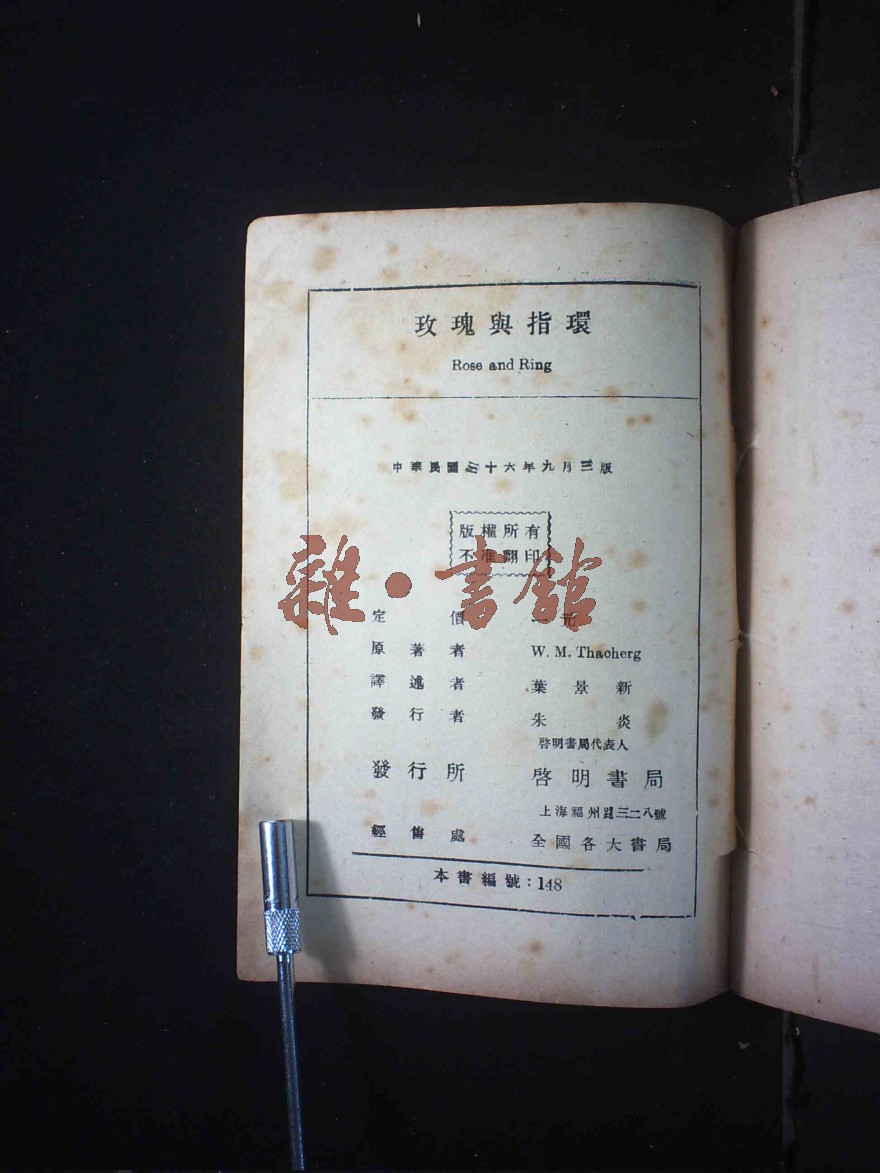 玫瑰與指環
Rose and Ring
中華民國三十六年九月三版
版權所有
不准翻印
雜·書館
定價 一元
原著者 W. M. Thacherg
譯述者 葉景新
發行者 朱炎
啓明書局代表人
發行所 啓明書局
上海福州路三二八號
經售處 全國各大書局
本書編號：148